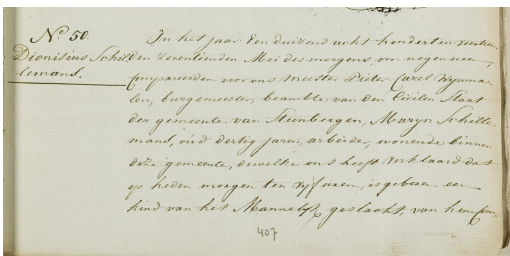 N.º 50.
Dionisius Schil-
lemans.
In het jaar Een duizend acht honderd en
den Zeventienden Mei des morgens om negen uren,
Compareerden voor ons Meester Pieter Carel Wijnma-
len, burgemeester, beambte van den Civilen Staat
der gemeente van Steenbergen, Maryn Schille-
mans, oud dertig jaren, arbeider, wonende binnen
deze gemeente, dewelke ons heeft verklaard dat
op heden morgen ten vijf uren, is geboren een
kind van het Mannelijk geslacht, van hem Com-
407